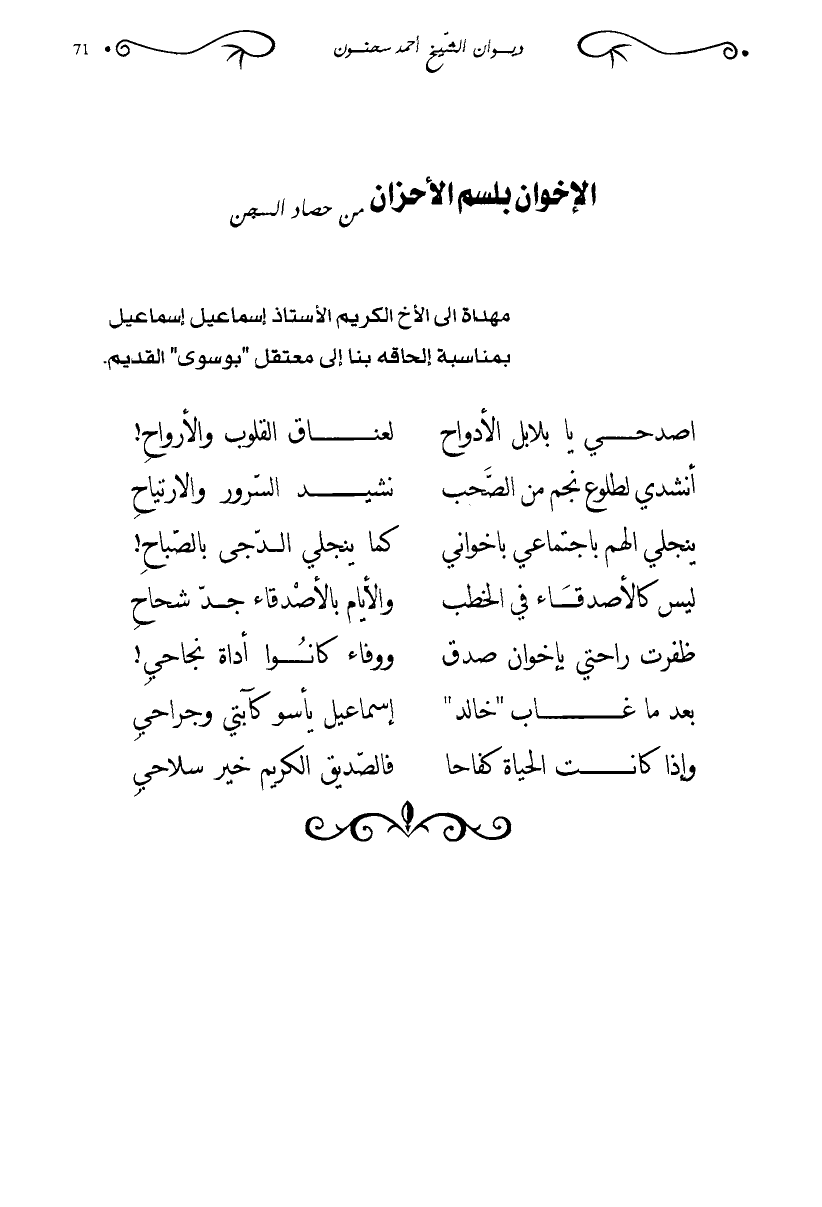 ديوان الشّيخ أحمد سحنون 71
الإخوان بلسم الأحزان من حصاد السجن
مهداة الى الأخ الكريم الأستاذ إسماعيل إسماعيل
بمناسبة إلحاقه بنا إلى معتقل "بوسوى" القديم.
اصدحي يا بلابل الأدواح لعناق القلوب والأرواحِ!
أنشدي لطلوع نجم من الصَّحب نشيد السّرور والارتياحِ
ينجلي الهم باجتماعي باخواني كما ينجلي الدّجى بالصّباحِ!
ليس كالأصدقَاء في الخطب والأيام بالأصْدقاء جدّ شحاحِ
ظفرت راحتي بإخوان صدق ووفاء كانُوا أداة نجاحيِ!
بعد ما غاب "خالد" إسماعيل يأسو كآبتي وجراحيِ
وإذا كانت الحياة كفاحا فالصّديق الكريم خير سلاحيِ